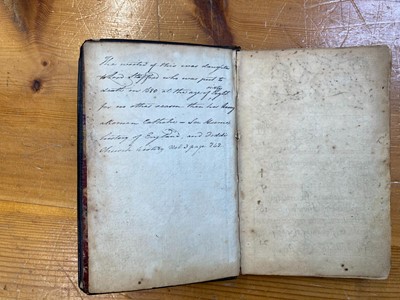 The            of this was daughter
to Lord Stafford who was put to
death in 1680 at the age of                 eighty
for no other reason than his being
a Roman Catholic - See Hume's
history of England, and Dodd's
Church history Vol 3 page